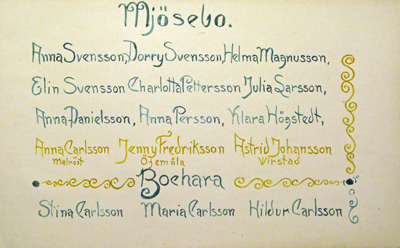 Mjösebo.
Anna Svensson, Dorry Svensson, Helma Magnusson,
Elin Svensson Charlotta Pettersson Julia Larsson,
Anna-Danielsson, Anna Persson, Klara Högstedt,
Anna Carlsson Jenny Fredriksson Astrid Johansson
Öjemåla Virstad
Bochara
Stina Carlsson Maria Carlsson Hildur Carlsson